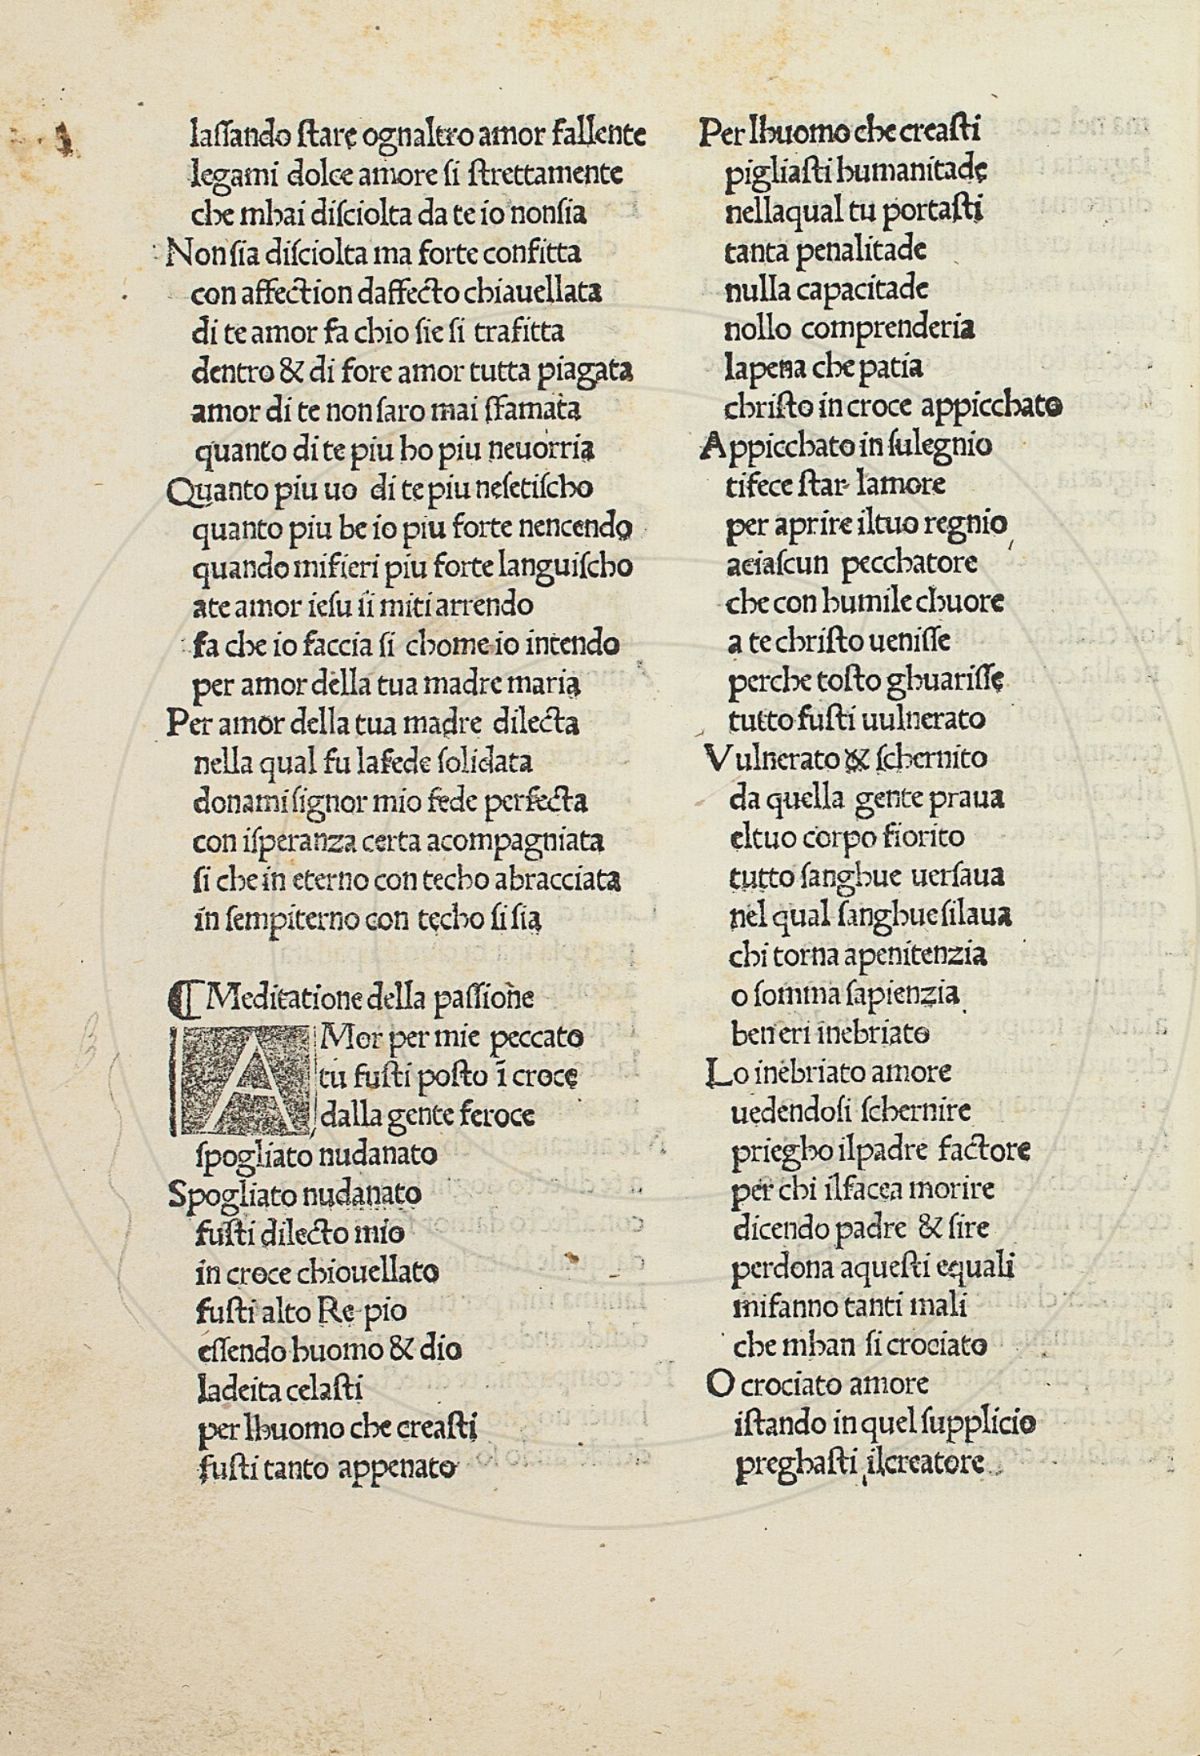 laſſando ſtare ognaltro amor fallente
legami dolce amore ſi ſtrettamente
che mhai diſciolta da te io nonſia
Non ſia diſciolta ma forte confitta
con affection daffecto chiauellata
di te amor fa chio ſie ſi trafitta
dentro & di fore amor tutta piagata
amor di te non ſaro mai ſfamata
quanto di te piu ho piu neuorria
Quanto piu uo di te piu neſetiſcho
quanto piu be io piu forte nencendo
quando mifieri piu forte languiſcho
ate amor ieſu ſi miti arrendo
fa che io faccia ſi chome io intendo
per amor della tua madre maria
Per amor della tua madre dilecta
nella qual fu lafede ſolidata
donami ſignor mio fede perfecta
con iſperanza certa acompagniata
ſi che in eterno con techo abracciata
in ſempiterno con techo ſi ſia
¶ Meditatione della paſſione
AMor per mie peccato
tu fuſti poſto ī croce
dalla gente feroce
ſpogliato nudanato
Spogliato nudanato
fuſti dilecto mio
in croce chiouellato
fuſti alto Re pio
eſſendo huomo & dio
ladeita celaſti
per lhuomo che creaſti
fuſti tanto appenato
Per lhuomo che creaſti
pigliaſti humanitade
nellaqual tu portaſti
tanta penalitade
nulla capacitade
nollo comprenderia
lapena che patia
chriſto in croce appicchato
Appicchato in ſulegnio
tifece ſtar lamore
per aprire iltuo regnio
aciaſcun pecchatore
che con humile chuore
a te chriſto ueniſſe
perche toſto ghuariſſe
tutto fuſti uulnerato
Vulnerato & ſchernito
da quella gente praua
eltuo corpo fiorito
tutto ſanghue uerſaua
nel qual ſanghue ſilaua
chi torna apenitenzia
o ſomma ſapienzia
ben eri inebriato
Lo inebriato amore
uedendoſi ſchernire
priegho ilpadre factore
per chi ilfacea morire
dicendo padre & ſire
perdona aqueſti equali
mifanno tanti mali
che mhan ſi crociato
O crociato amore
iſtando in quel ſupplicio
preghaſti ilcreatore